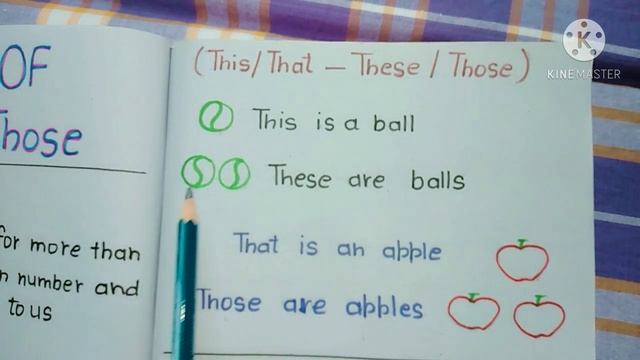 OF
hose
for more than
n number and
to us
(This/That – These / Those)
This is a ball
These are balls
That is an apple
Those are apples
K
KINEMASTER